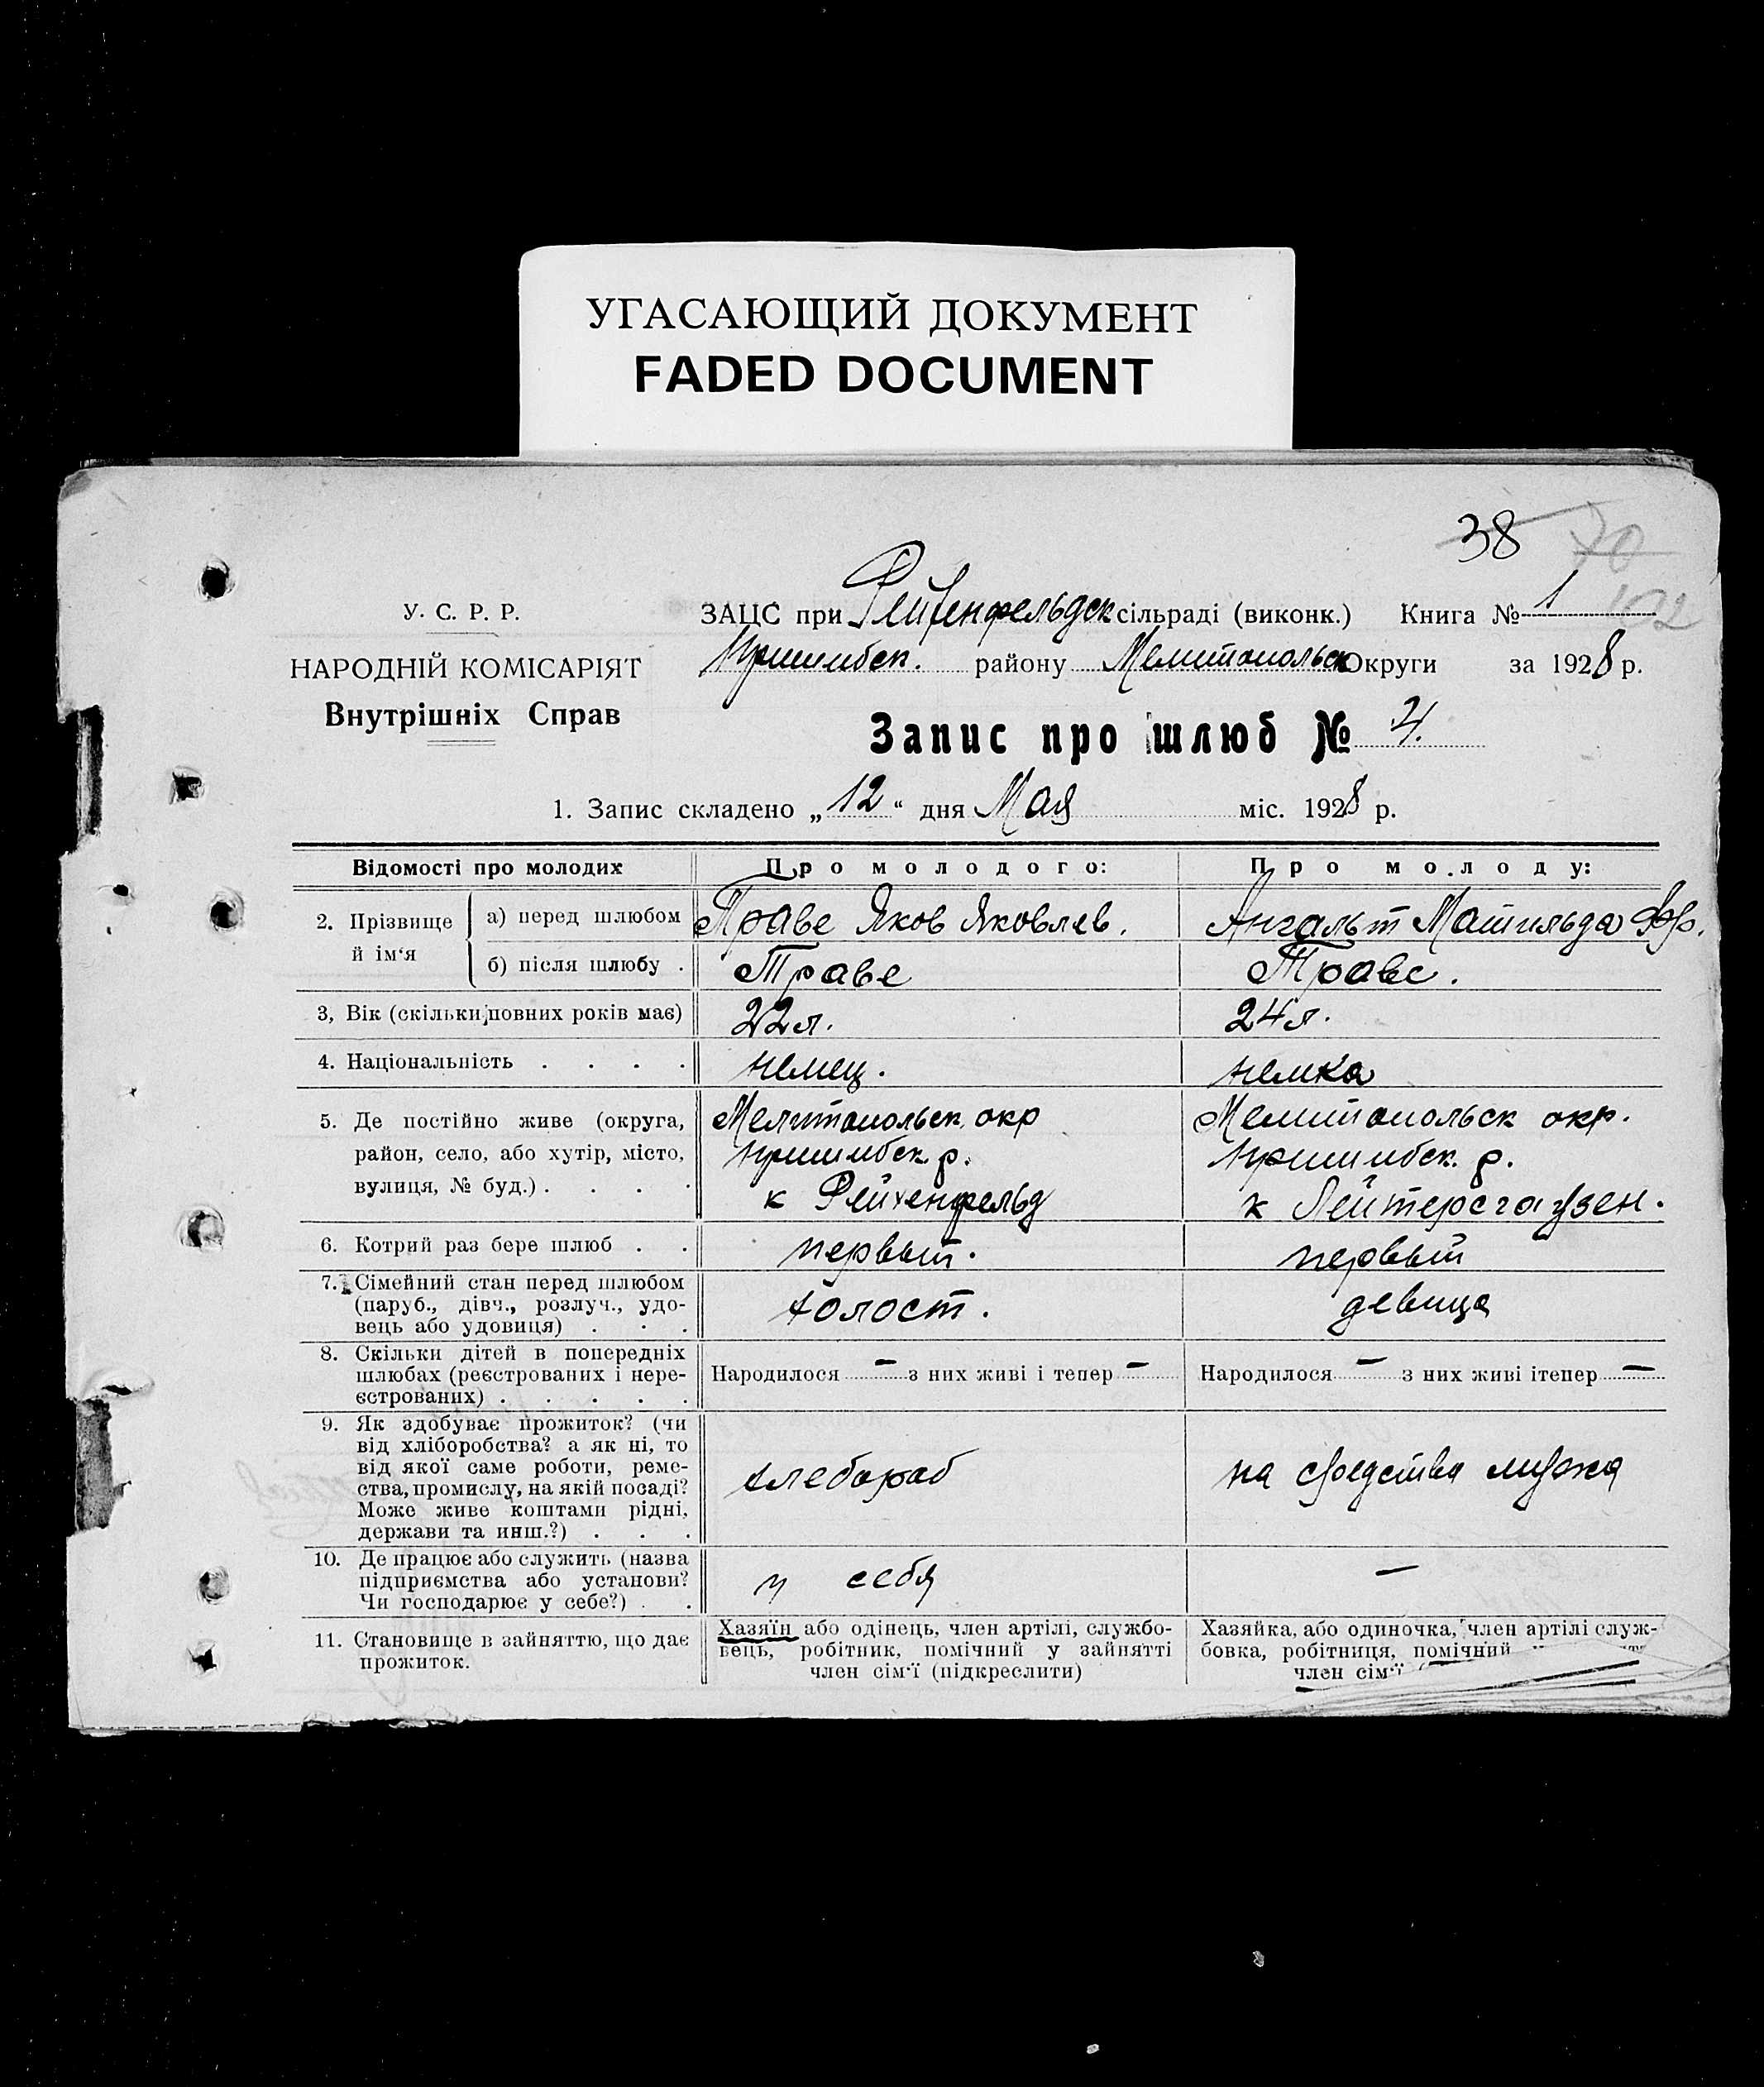 УГАСАЮЩИЙ ДОКУМЕНТ
FADED DOCUMENT
38 70
У. С. Р. Р.
НАРОДНІЙ КОМІСАРІЯТ
Внутрішніх Справ
ЗАЦС при Рейхенфельдск сільраді (виконк.) Книга № 1 102
Пришибск. району Мелитопольск Округи за 1928 р.
Запис про шлюб № 4.
1. Запис складено „12“ дня Мая міс. 1928 р.
Відомості про молодих Про молодого: Про молоду:
2. Прізвище й ім‘я а) перед шлюбом Траве Яков Яковлев. Ангальт Матильда Фр.
б) після шлюбу . Траве Траве.
3, Вік (скільки повних років має) 22 л. 24 л.
4. Національність . . . . немец. немка
5. Де постійно живе (округа, Мелитопольск. окр Мелитопольск окр.
район, село, або хутір, місто, Пришибск. р. Пришибск. р.
вулиця, № буд.) . . . . к Рейхенфельд к Лейтерсгаузен.
6. Котрий раз бере шлюб . . первый. первый
7. Сімейний стан перед шлюбом
(паруб., дівч., розлуч., удо- холост. девица
вець або удовиця) . . .
8. Скільки дітей в попередніх
шлюбах (реєстрованих і нере- Народилося — з них живі і тепер — Народилося — з них живі ітепер —
єстрованих) . . . . .
9. Як здобуває прожиток? (чи
від хліборобства? а як ні, то
від якої саме роботи, реме- хлебораб на средства мужа
ства, промислу, на якій посаді?
Може живе коштами рідні,
держави та инш.?) . . .
10. Де працює або служить (назва
підприємства або установи? у себя —
Чи господарює у себе?) . .
11. Становище в зайняттю, що дає Хазяїн або одінець, член артілі, службо- Хазяйка, або одиночка, член артілі служ-
прожиток. вець, робітник, помічний у зайнятті бовка, робітниця, помічний
член сім‘ї (підкреслити) член сім‘ї